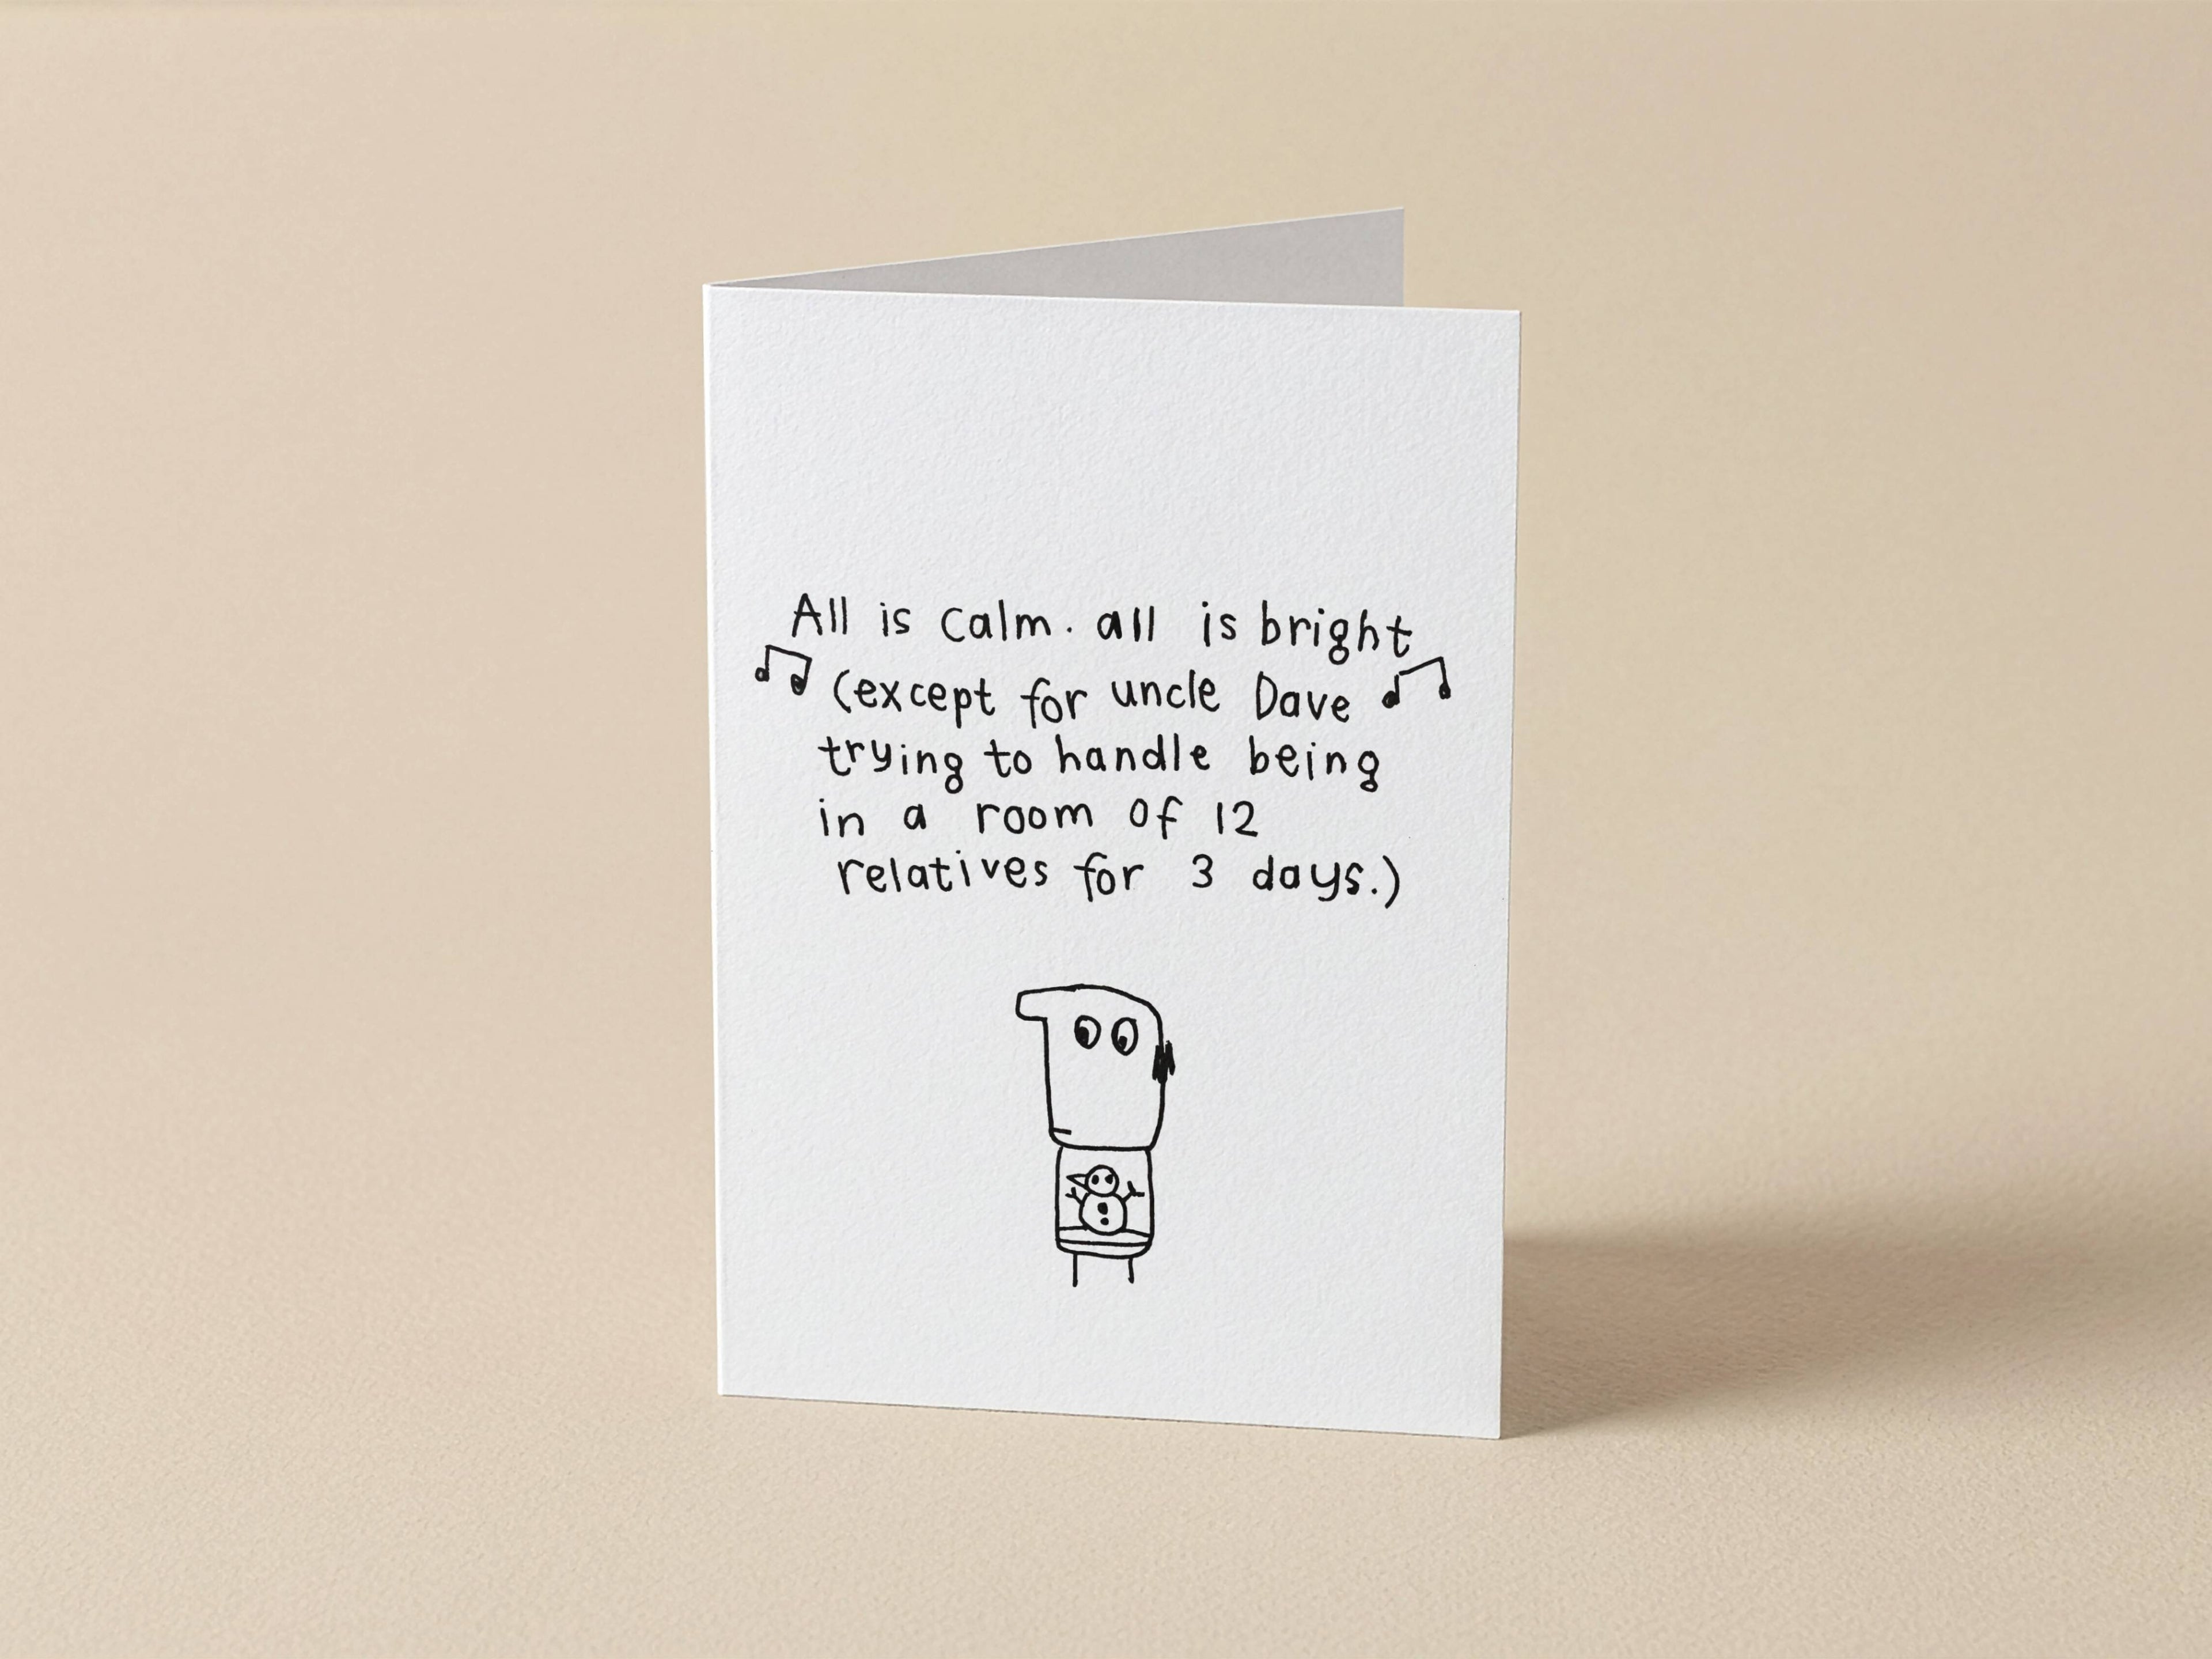 All is calm. all is bright
(except for uncle Dave
trying to handle being
in a room of 12
relatives for 3 days.)